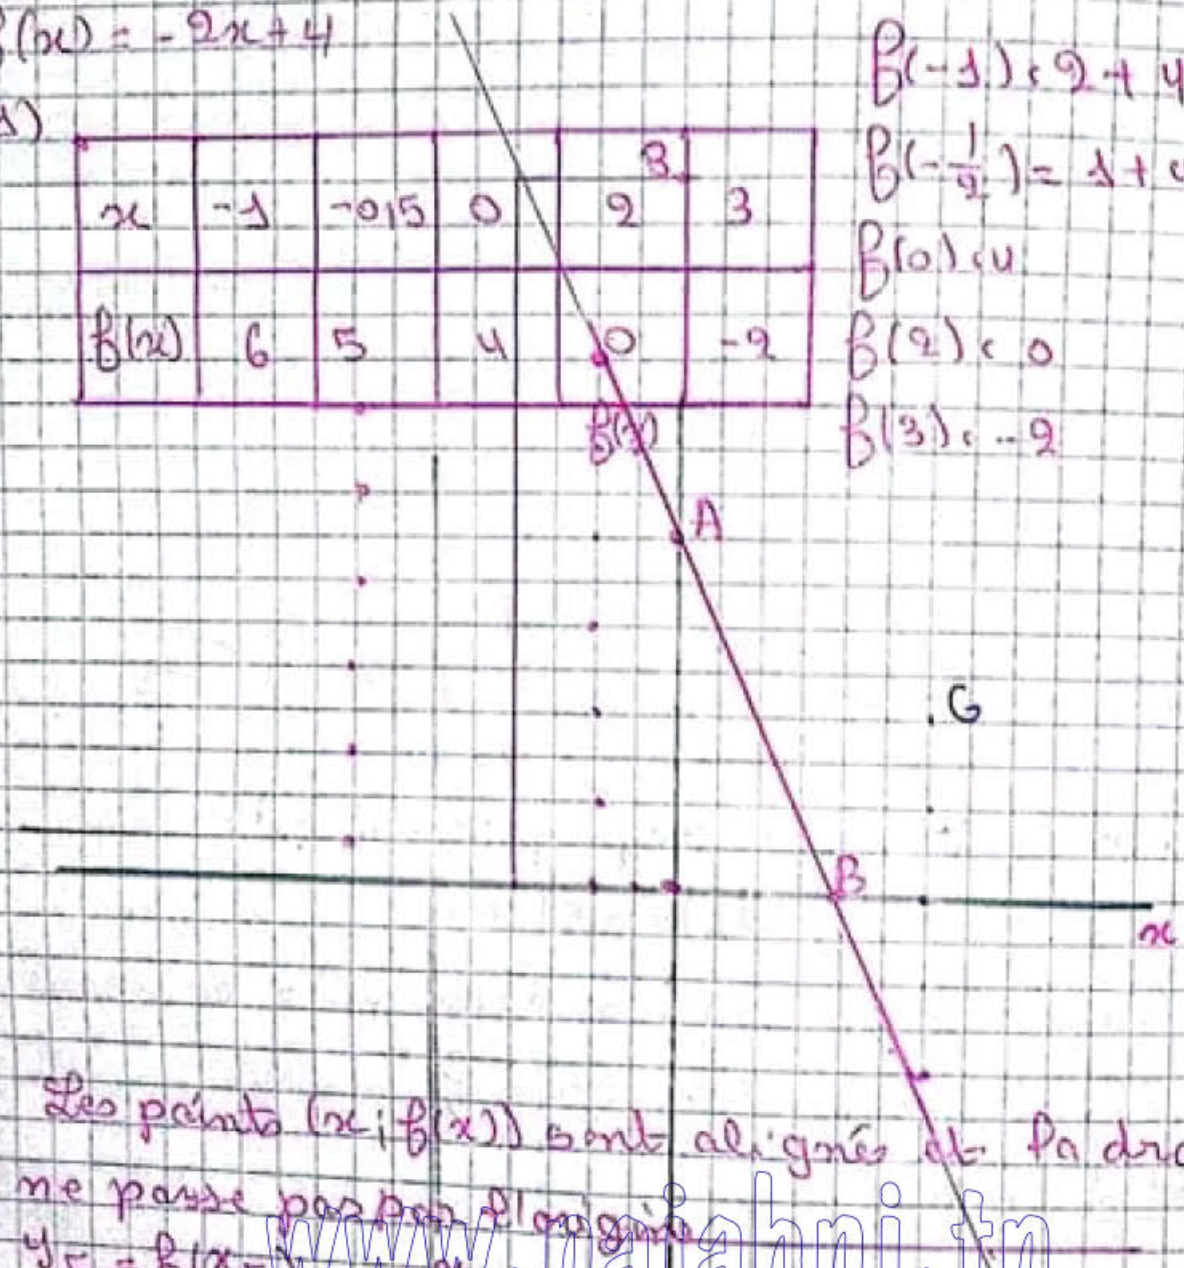 f(x) = -2x+4
1)
x -1 -0,5 0 2 3
f(x) 6 5 4 0 -2
f(-1) = 2 + 4
f(-1/2) = 1 +
f(0) = 4
f(2) = 0
f(3) = -2
f(x)
A
G
B
x
Les points (x; f(x)) sont alignés et la dro
ne passe pas par l'origine
www.najahni.tn